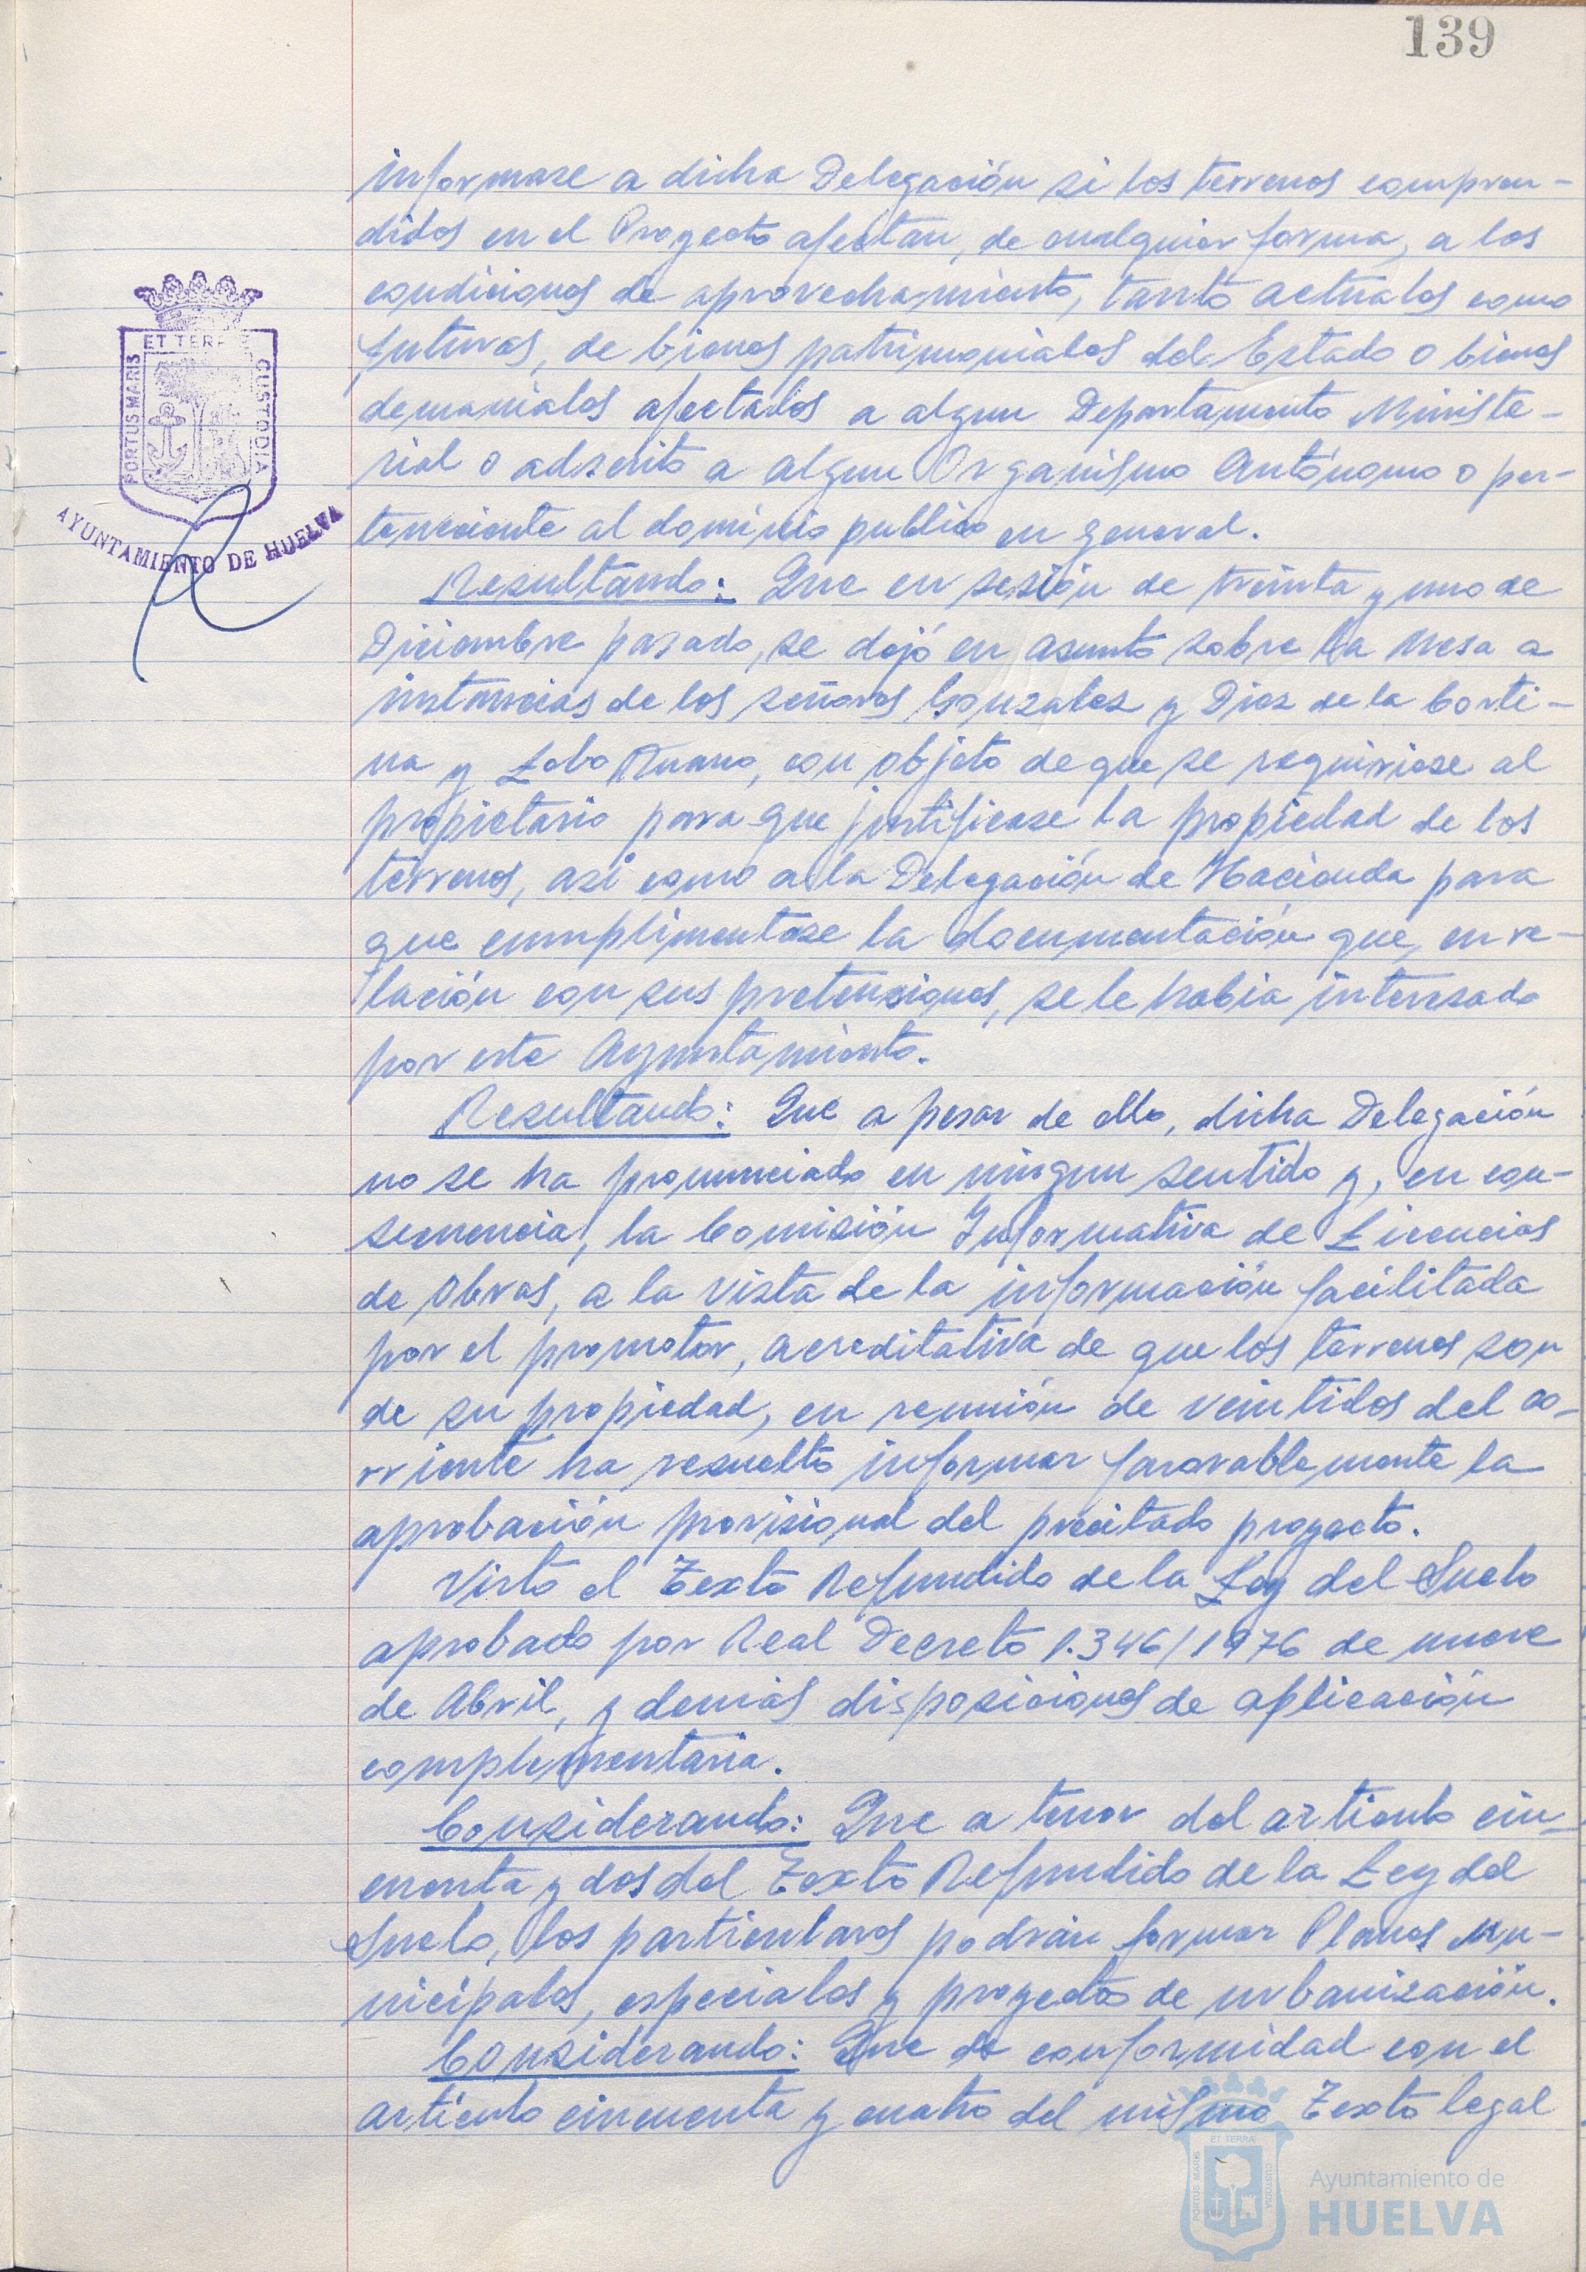 139
informase a dicha Delegación si los terrenos compren-
didos en el Proyecto afectan, de cualquier forma, a las
condiciones de aprovechamiento, tanto actuales como
futuras, de bienes patrimoniales del Estado o bienes
demaniales afectados a algun Departamento Ministe-
rial o adscrito a algun Organismo Autónomo o per-
teneciente al dominio publico en general.
Resultando: Que en sesión de treinta y uno de
Diciembre pasado, se dejó en asunto sobre la Mesa a
instancias de los señores Gonzalez y Diez de la Corti-
na y Lobo Ruano, con objeto de que se requiriese al
propietario para que justificase la propiedad de los
terrenos, asi como a la Delegación de Hacienda para
que cumplimentase la documentación que, en re-
lación con sus pretensiones, se le habia interesado
por este Ayuntamiento.
Resultando: Que a pesar de ello, dicha Delegación
no se ha pronunciado en ningun sentido y, en con-
secuencia, la Comisión Informativa de Licencias
de Obras, a la vista de la información facilitada
por el promotor, acreditativa de que los terrenos son
de su propiedad, en reunión de veintidos del co-
rriente ha resuelto informar favorablemente la
aprobación provisional del precitado proyecto.
Visto el Texto Refundido de la Ley del Suelo
aprobado por Real Decreto 1.346/1976 de nueve
de Abril, y demás disposiciones de aplicación
complementaria.
Considerando: Que a tenor del articulo cin-
cuenta y dos del Texto Refundido de la Ley del
Suelo, los particulares podrán formar Planes Mu-
nicipales, especiales y proyectos de urbanización.
Considerando: Que de conformidad con el
artículo cincuenta y cuatro del mismo Texto legal
PORTUS MARIS
ET TERRAE
CUSTODIA
AYUNTAMIENTO DE HUELVA
PORTUS MARIS
ET TERRAE
CUSTODIA
Ayuntamiento de
HUELVA